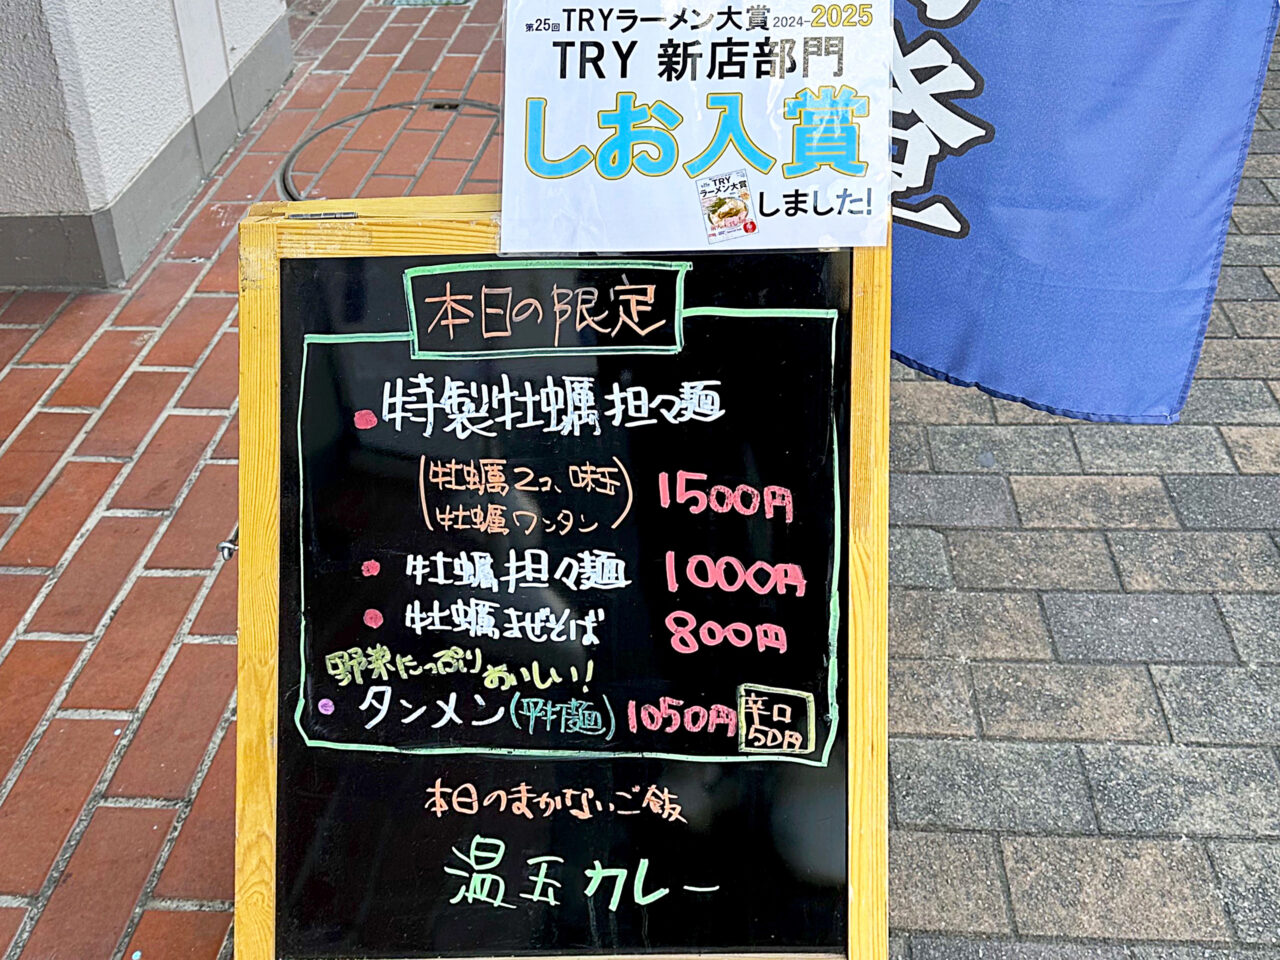 第25回 TRYラーメン大賞 2024-2025
TRY 新店部門
しお入賞
TRY
ラーメン大賞
しました!
本日の限定
• 特製牡蠣担々麺
(牡蠣2コ、味玉
牡蠣ワンタン) 1500円
• 牡蠣担々麺 1000円
• 牡蠣まぜそば 800円
野菜たっぷり おいしい!
• タンメン(平打麺) 1050円 辛口 50円
本日のまかないご飯
温玉カレー